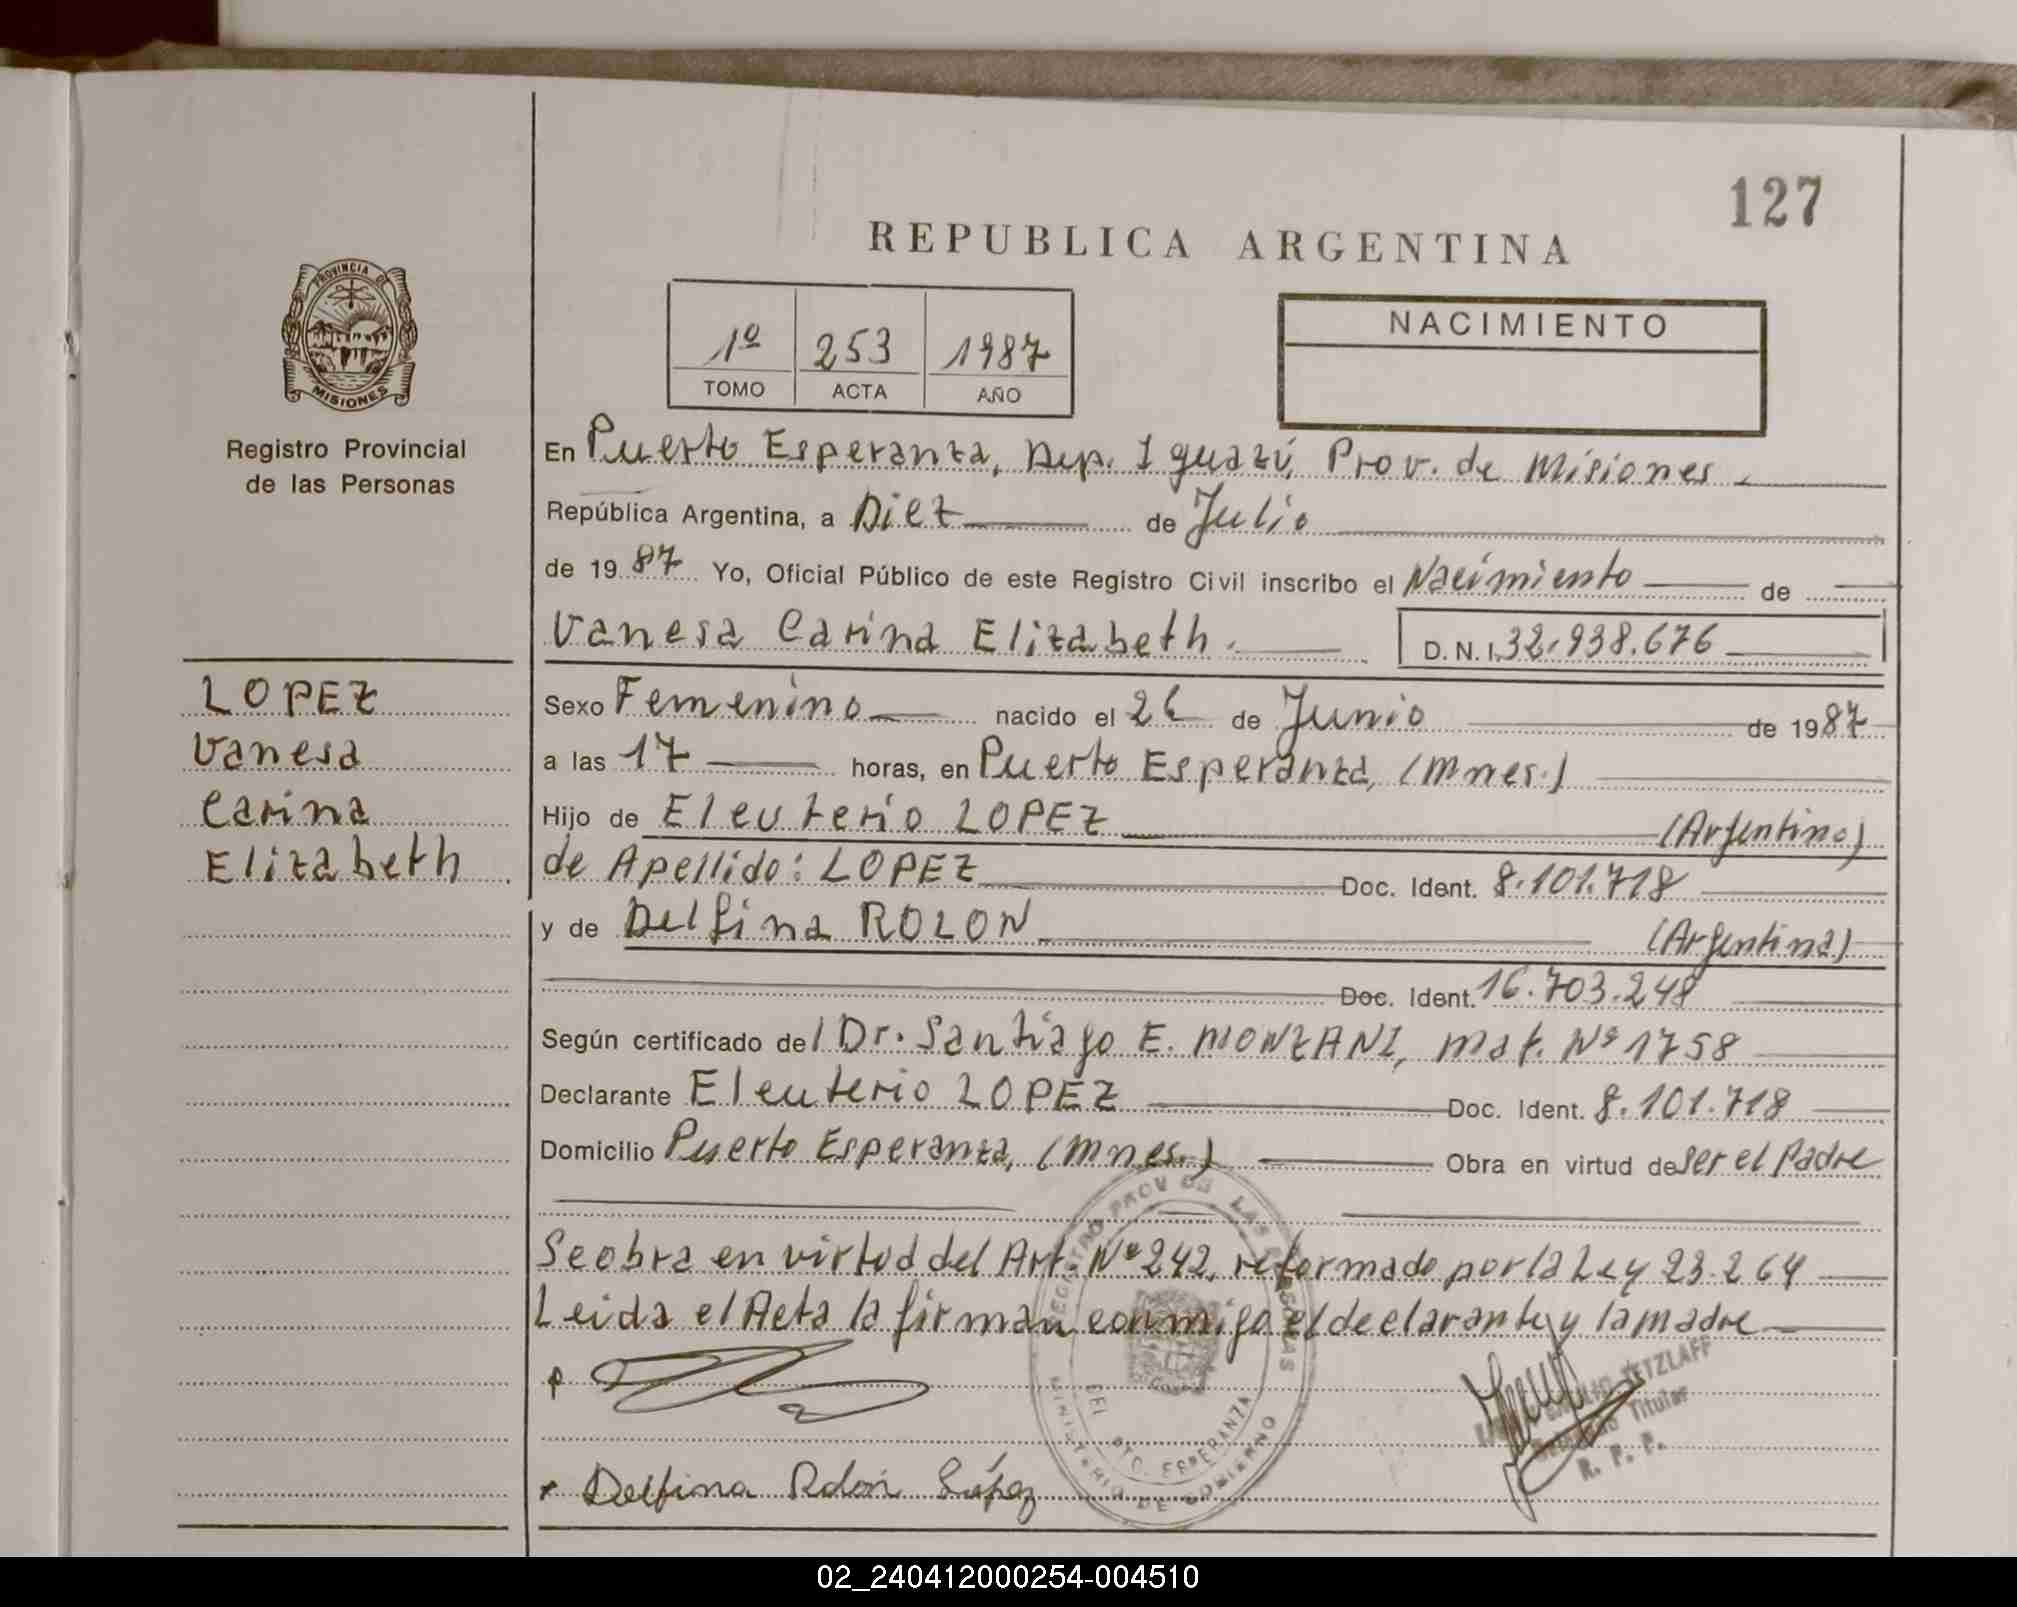 127
REPUBLICA ARGENTINA
PROVINCIA DE
MISIONES
Registro Provincial
de las Personas
1º 253 1987
TOMO ACTA AÑO
NACIMIENTO
En Puerto Esperanza, Dep. Iguazú, Prov. de Misiones.
República Argentina, a Diez de Julio
de 1987 Yo, Oficial Público de este Registro Civil inscribo el Nacimiento de
Vanesa Carina Elizabeth. D. N. I. 32.938.676
LOPEZ
Vanesa
Carina
Elizabeth
Sexo Femenino nacido el 26 de Junio de 1987
a las 17 horas, en Puerto Esperanza, (Mnes.)
Hijo de Eleuterio LOPEZ (Argentino)
de Apellido: LOPEZ Doc. Ident. 8.101.718
y de Delfina ROLON (Argentina)
Doc. Ident. 16.703.248
Según certificado del Dr. Santiago E. MONZANI, Mat. Nº 1758
Declarante Eleuterio LOPEZ Doc. Ident. 8.101.718
Domicilio Puerto Esperanza, (Mnes.) Obra en virtud de ser el Padre
Se obra en virtud del Art. Nº 242, reformado por la Ley 23.264
Leida el Acta la firman conmigo el declarante y la madre
REGISTRO PROV DE LAS PERSONAS
DEL PTO. ESPERANZA
MINISTERIO DE GOBIERNO
Titular
R. P. P.
Delfina Rolón López
02_240412000254-004510